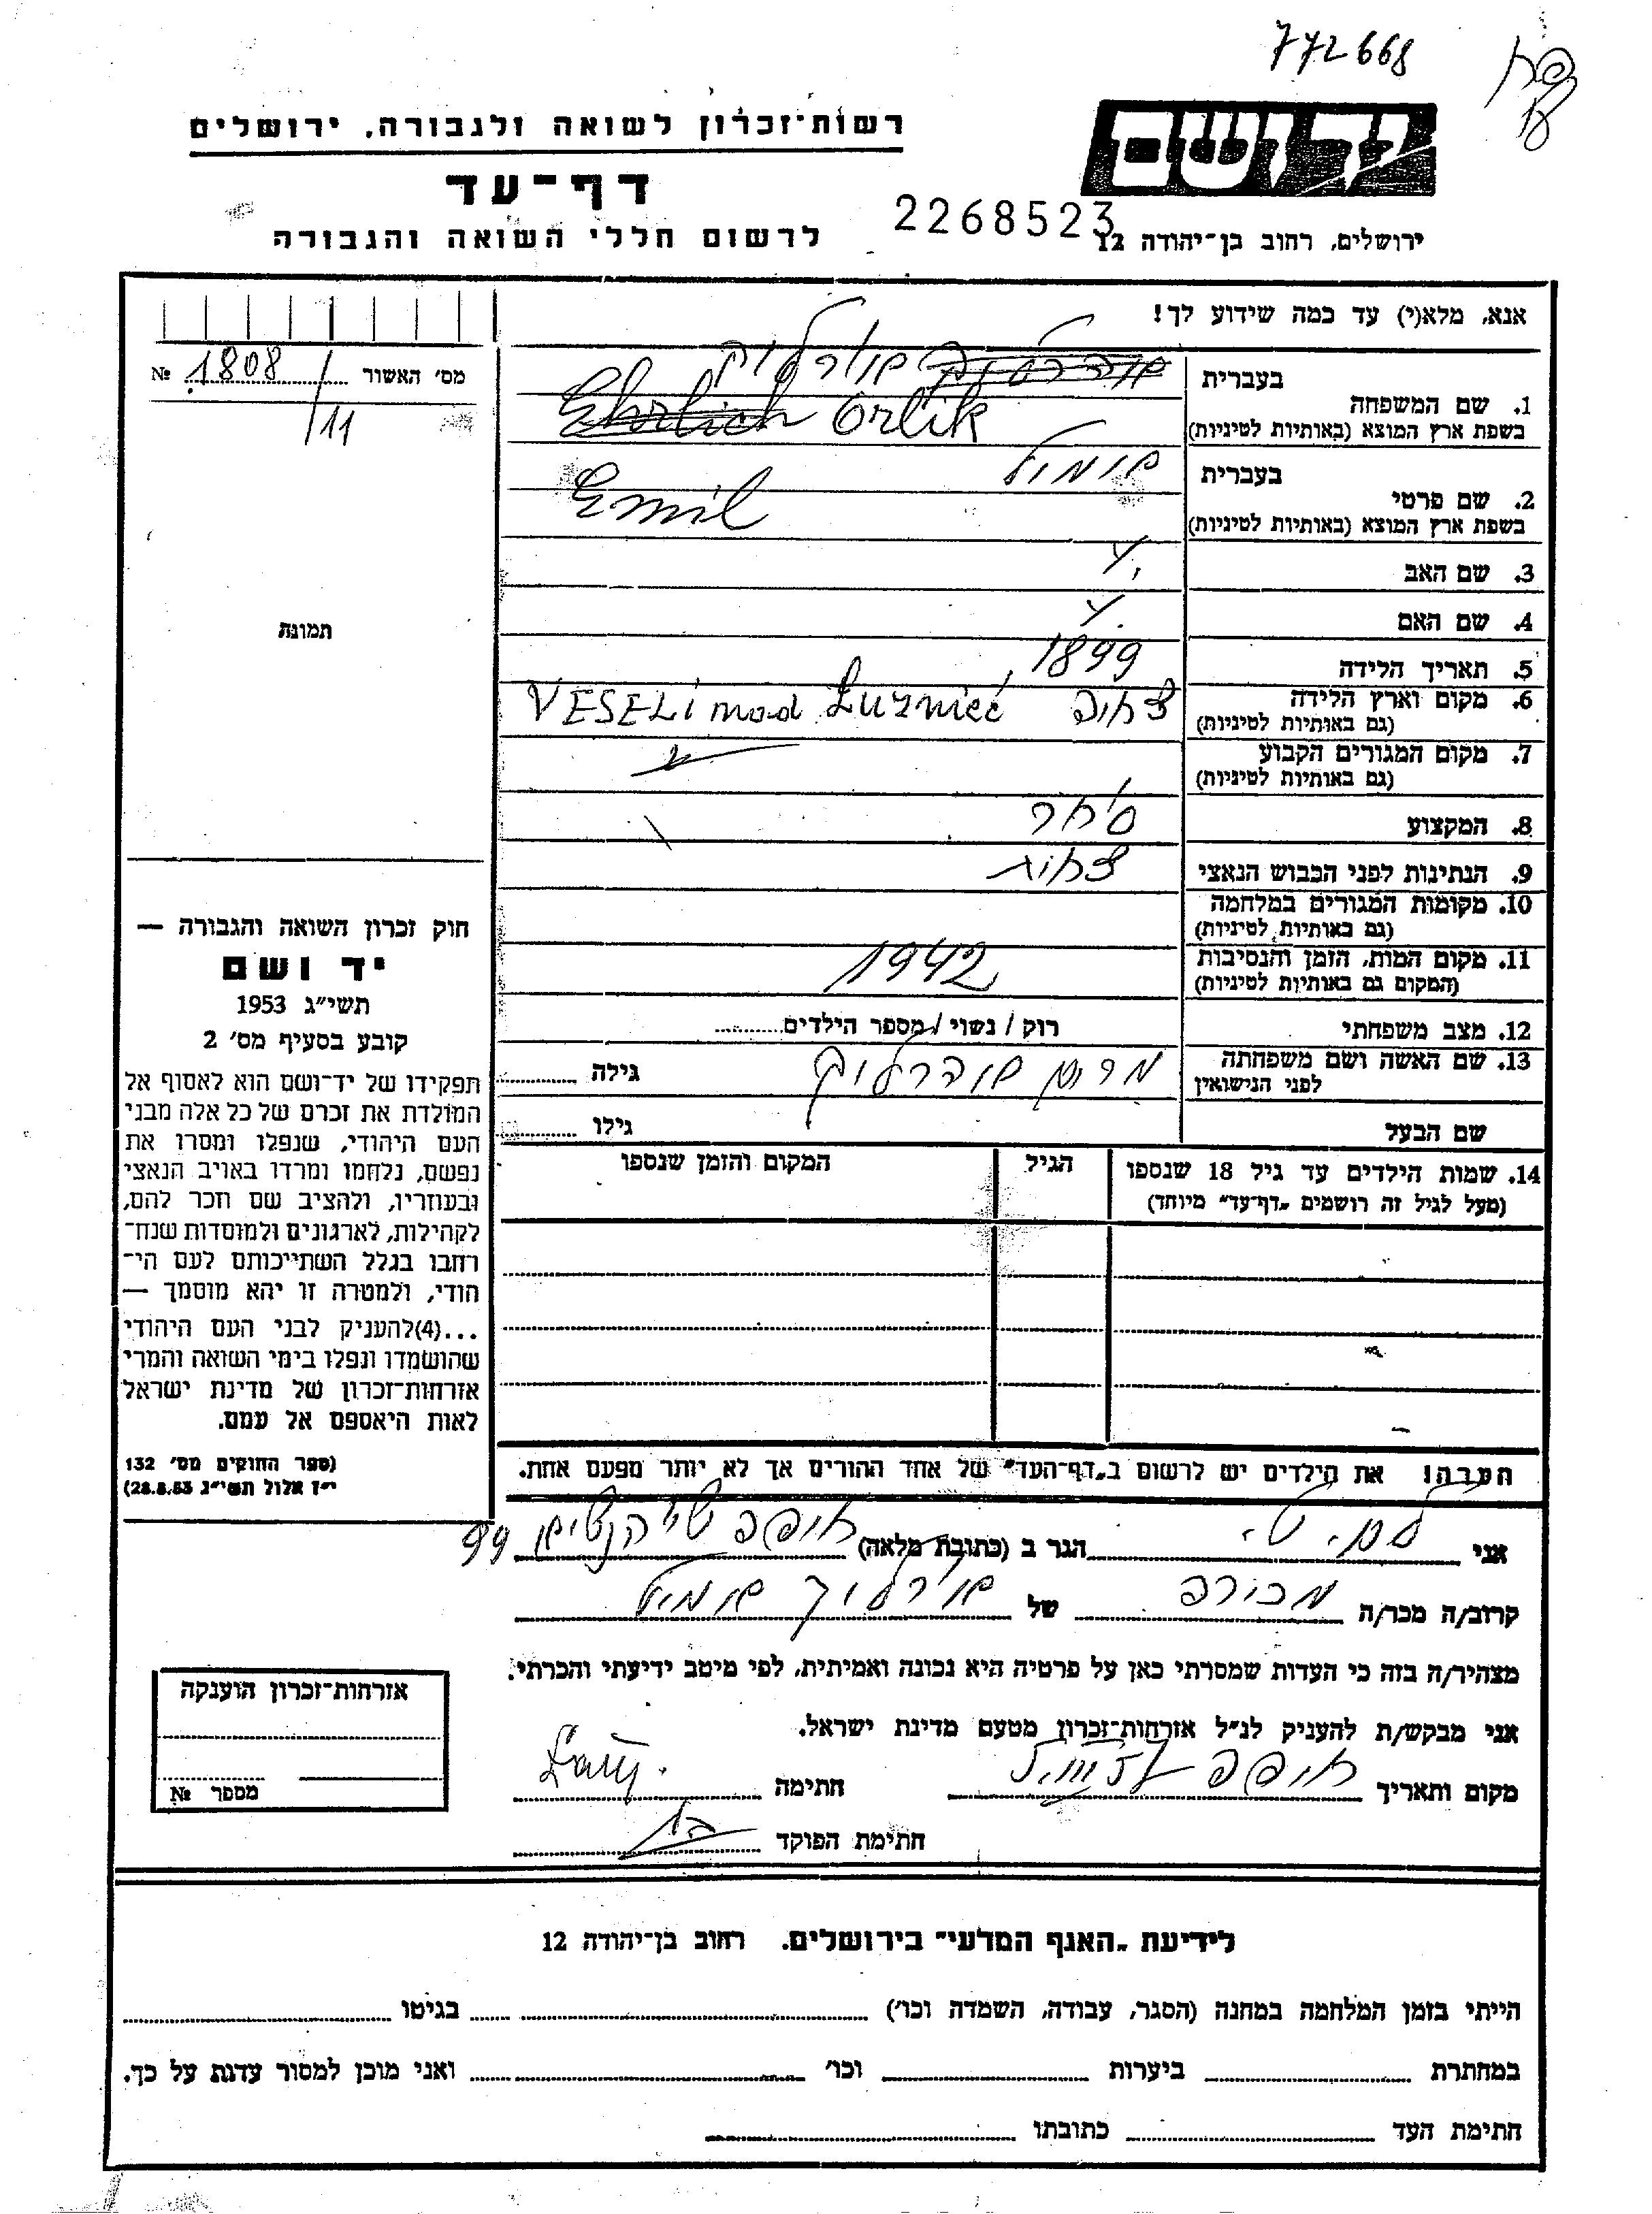 772668
רשות־זכרון לשואה ולגבורה, ירושלים
דף־עד
לרשום חללי השואה והגבורה
2268523
ירושלים, רחוב בן־יהודה 12
אנא, מלא(י) עד כמה שידוע לך!
מס׳ האשור 1808 №
/11
תמונת
1. שם המשפחה
בעברית אורליק
בשפת ארץ המוצא (באותיות לטיניות) Ehrlich Orlik
2. שם פרטי
בעברית אמיל
בשפת ארץ המוצא (באותיות לטיניות) Emil
3. שם האב
4. שם האם
5. תאריך הלידה 1899
6. מקום וארץ הלידה
(גם באותיות לטיניות) צ׳כיה VESELí nad Lužnicí
7. מקום המגורים הקבוע
(גם באותיות לטיניות)
8. המקצוע סוחר
9. הנתינות לפני הכבוש הנאצי צ׳כית
10. מקומות המגורים במלחמה
(גם באותיות לטיניות)
11. מקום המות, הזמן והנסיבות
(המקום גם באותיות לטיניות) 1942
12. מצב משפחתי רוק / נשוי / מספר הילדים
13. שם האשה ושם משפחתה
לפני הנישואין גילה
שם הבעל גילו
14. שמות הילדים עד גיל 18 שנספו
(מעל לגיל זה רושמים „דף־עד״ מיוחד)
הגיל
המקום והזמן שנספו
חוק זכרון השואה והגבורה —
יד ושם
תשי״ג 1953
קובע בסעיף מס׳ 2
תפקידו של יד־ושם הוא לאסוף אל
המולדת את זכרם של כל אלה מבני
העם היהודי, שנפלו ומסרו את
נפשם, נלחמו ומרדו באויב הנאצי
ובעוזריו, ולהציב שם וזכר להם,
לקהילות, לארגונים ולמוסדות שנח־
רחבו בגלל השתייכותם לעם הי־
הודי, ולמטרה זו יהא מוסמך —
...(4)להעניק לבני העם היהודי
שהושמדו ונפלו בימי השואה והמרי
אזרחות־זכרון של מדינת ישראל
לאות היאספם אל עמם.
(ספר החוקים מס׳ 132
י״ז אלול תשי״ג 28.8.53)
הערה! את הילדים יש לרשום ב„דף־העד״ של אחד ההורים אך לא יותר מפעם אחת.
אני הגר ב (כתובת מלאה) חיפה 99
קרוב/ה מכר/ה מכירה של אורליק אמיל
מצהיר/ה בזה כי העדות שמסרתי כאן על פרטיה היא נכונה ואמיתית, לפי מיטב ידיעתי והכרתי.
אני מבקש/ת להעניק לנ״ל אזרחות־זכרון מטעם מדינת ישראל.
מקום ותאריך חיפה חתימה
חתימת הפוקד
אזרחות־זכרון הוענקה
מספר №
לידיעת „האגף המדעי״ בירושלים. רחוב בן־יהודה 12
הייתי בזמן המלחמה במחנה (הסגר, עבודה, השמדה וכו׳) בגיטו
במחתרת ביערות וכו׳ ואני מוכן למסור עדות על כך.
חתימת העד כתובתו